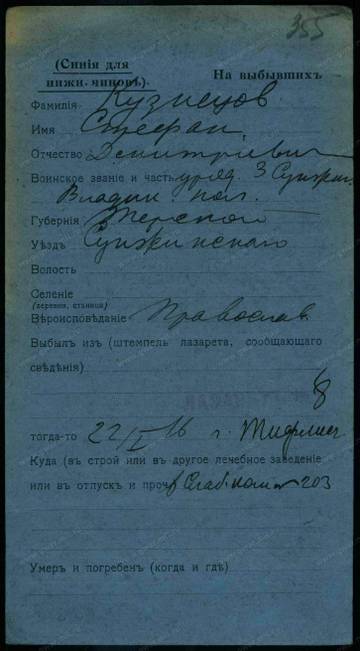 355
(Синія для
нижн. чиновъ).
На выбывшихъ
Фамилія Кузнецов
Имя Стефан
Отчество Дмитриевич
Воинское званіе и часть уряд. 3 Сунжен
Владик. пол.
Губернія Терской
Уѣздъ Сунжинскаго
Волость
Селеніе
(деревня, станица)
Вѣроисповѣданіе Православ
Выбылъ изъ (штемпель лазарета, сообщающаго
свѣдѣнія)
8
тогда-то 22/I 16 г. Тифлис
Куда (въ строй или въ другое лечебное заведеніе
или въ отпускъ и проч.) 203
Умеръ и погребенъ (когда и гдѣ)